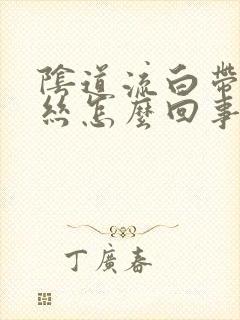 陰道流白帶
絲怎麼回事
丁廣春